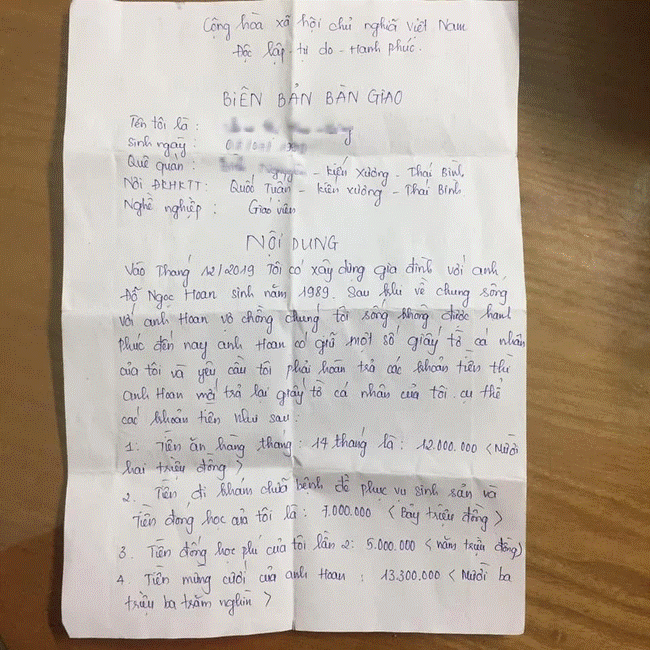 Cộng hòa xã hội chủ nghĩa Việt Nam
Độc lập - tự do - Hạnh phúc.
BIÊN BẢN BÀN GIAO
Tên tôi là :
Sinh ngày :
Quê quán : - Kiến Xương - Thái Bình
Nơi ĐKHKTT : Quốc Tuấn - Kiến Xương - Thái Bình
Nghề nghiệp : Giáo viên
NỘI DUNG
Vào Tháng 12/2019 Tôi có xây dựng gia đình với anh
Đỗ Ngọc Hoan sinh năm 1989. Sau khi về chung sống
với anh Hoan vợ chồng chúng tôi sống không được hạnh
phúc đến nay anh Hoan có giữ một số giấy tờ cá nhân
của tôi và yêu cầu tôi phải hoàn trả các khoản tiền thì
anh Hoan mới trả lại giấy tờ cá nhân của tôi. cụ thể
các khoản tiền như sau:
1. Tiền ăn hàng tháng : 14 tháng là : 12.000.000 < Mười
hai triệu đồng >
2. Tiền đi khám chữa bệnh để phục vụ sinh sản và
Tiền đóng học của tôi là : 7.000.000 < Bảy triệu đồng >
3. Tiền đóng học phí của tôi lần 2: 5.000.000 < năm triệu đồng)
4. Tiền mừng cưới của anh Hoan : 13.300.000 < Mười ba
triệu ba trăm nghìn >